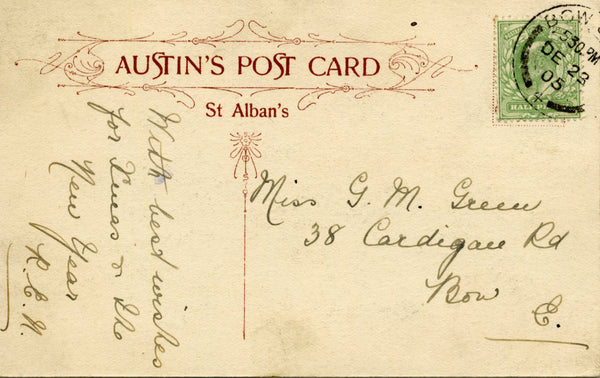 AUSTIN'S POST CARD
St Alban's
BOW
5 30 PM
DE 23
05
HALF PE
With best wishes
for Xmas & the
New Year
Miss G. M. Green
38 Cardigan Rd
Bow
E.